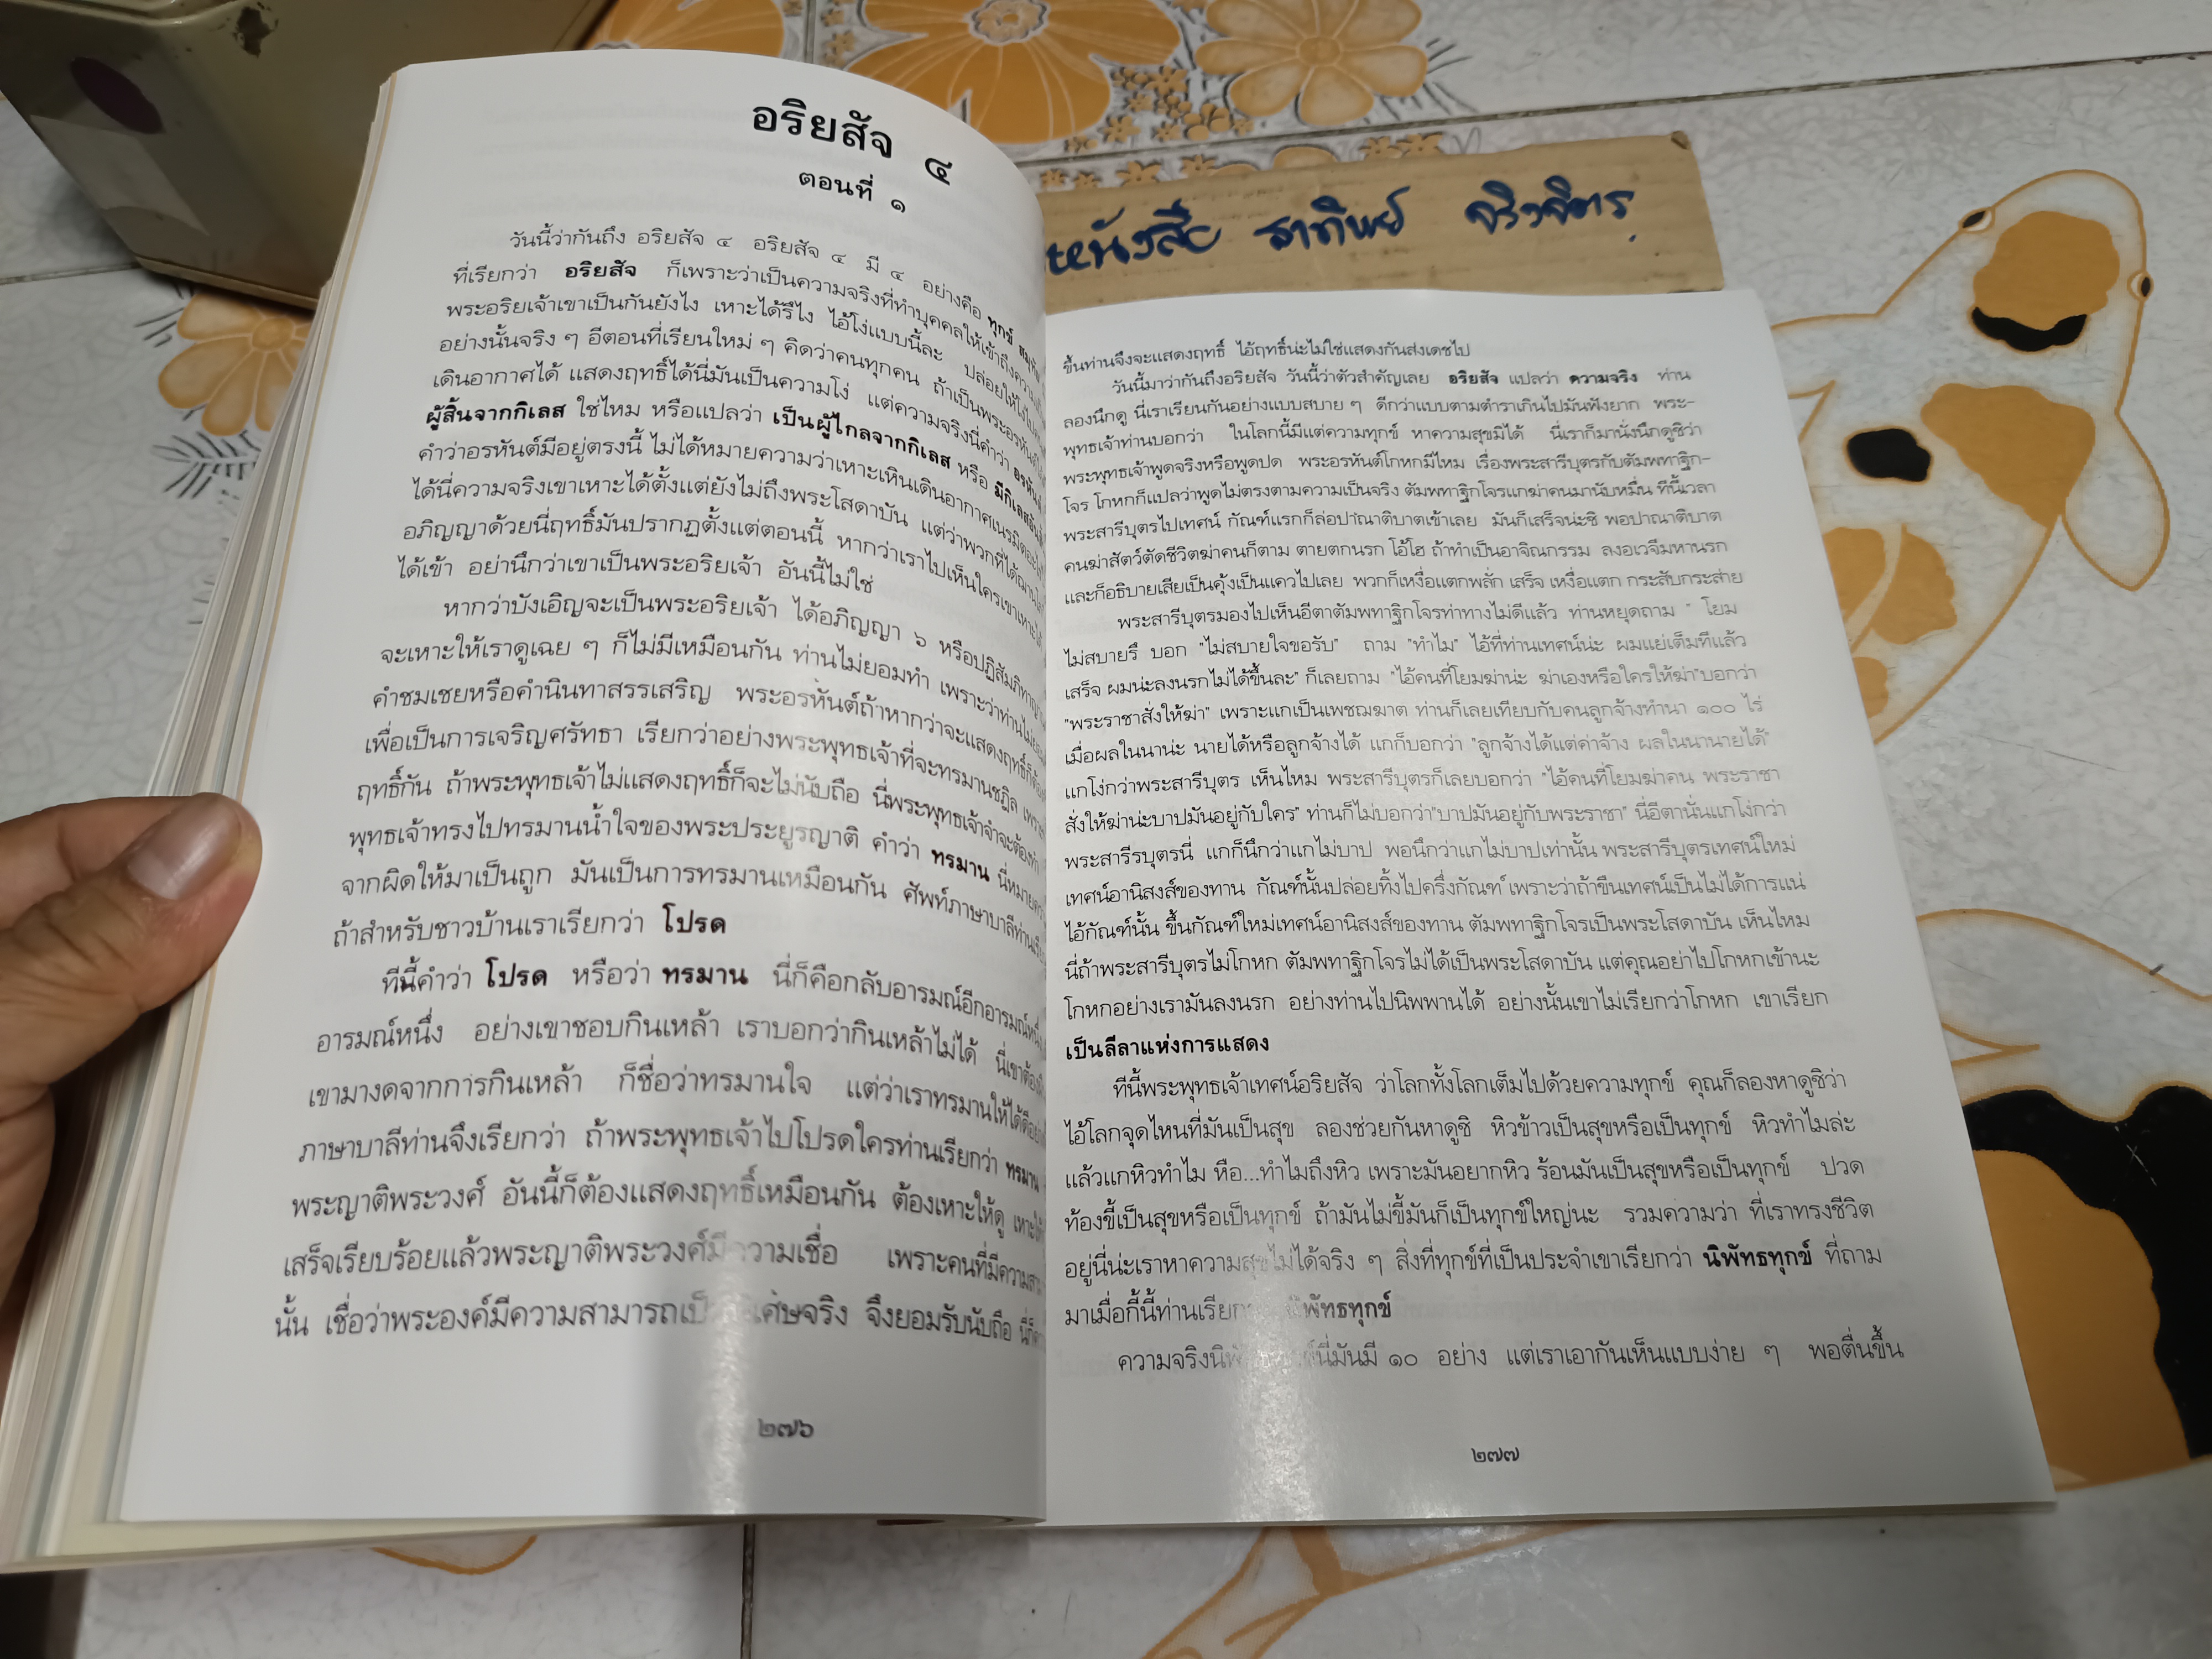 อริยสัจ ๔
ตอนที่ ๑
วันนี้ว่ากันถึง อริยสัจ ๔ อริยสัจ ๔ มี ๔ อย่างคือ ทุกข์
ที่เรียกว่า อริยสัจ ก็เพราะว่าเป็นความจริงที่ทำบุคคลให้เข้าถึงความ
พระอริยเจ้าเขาเป็นกันยังไง เหาะได้รึไง ไอ้โง่แบบนี้ละ ปล่อยให้โง่ไป
อย่างนั้นจริง ๆ อีตอนที่เรียนใหม่ ๆ คิดว่าคนทุกคน ถ้าเป็นพระอรหันต์
เดินอากาศได้ แสดงฤทธิ์ได้นี่มันเป็นความโง่ แต่ความจริงนี่คำว่า อรหันต์
ผู้สิ้นจากกิเลส ใช่ไหม หรือแปลว่า เป็นผู้ไกลจากกิเลส หรือ มีกิเลส
คำว่าอรหันต์มีอยู่ตรงนี้ ไม่ได้หมายความว่าเหาะเหินเดินอากาศเนรมิตอะไร
ได้นี่ความจริงเขาเหาะได้ตั้งแต่ยังไม่ถึงพระโสดาบัน แต่ว่าพวกที่ได้ฌาน
อภิญญาด้วยนี่ฤทธิ์มันปรากฏตั้งแต่ตอนนี้ หากว่าเราไปเห็นใครเขาเหาะได้
ได้เข้า อย่านึกว่าเขาเป็นพระอริยเจ้า อันนี้ไม่ใช่
หากว่าบังเอิญจะเป็นพระอริยเจ้า ได้อภิญญา ๖ หรือปฏิสัมภิทาญาณ
จะเหาะให้เราดูเฉย ๆ ก็ไม่มีเหมือนกัน ท่านไม่ยอมทำ เพราะว่าท่านไม่
คำชมเชยหรือคำนินทาสรรเสริญ พระอรหันต์ถ้าหากว่าจะแสดงฤทธิ์ก็
เพื่อเป็นการเจริญศรัทธา เรียกว่าอย่างพระพุทธเจ้าที่จะทรมานชฎิล
ฤทธิ์กัน ถ้าพระพุทธเจ้าไม่แสดงฤทธิ์ก็จะไม่นับถือ นี่พระพุทธเจ้าจำจะต้องทำ
พุทธเจ้าทรงไปทรมานน้ำใจของพระประยูรญาติ คำว่า ทรมาน นี่
จากผิดให้มาเป็นถูก มันเป็นการทรมานเหมือนกัน ศัพท์ภาษาบาลีท่าน
ถ้าสำหรับชาวบ้านเราเรียกว่า โปรด
ทีนี้คำว่า โปรด หรือว่า ทรมาน นี่ก็คือกลับอารมณ์อีกอารมณ์หนึ่ง
อารมณ์หนึ่ง อย่างเขาชอบกินเหล้า เราบอกว่ากินเหล้าไม่ได้ นี่เขาต้อง
เขามางดจากการกินเหล้า ก็ชื่อว่าทรมานใจ แต่ว่าเราทรมานให้ได้ดี
ภาษาบาลีท่านจึงเรียกว่า ถ้าพระพุทธเจ้าไปโปรดใครท่านเรียกว่า ทรมาน
พระญาติพระวงศ์ อันนี้ก็ต้องแสดงฤทธิ์เหมือนกัน ต้องเหาะให้ดู
เสร็จเรียบร้อยแล้วพระญาติพระวงศ์มีความเชื่อ เพราะคนที่มี
นั้น เชื่อว่าพระองค์มีความสามารถเป็นพิเศษจริง จึงยอมรับนับถือ
๒๗๖
หนังสือ ธาทิพย์ จริงจิตร
ขึ้นท่านจึงจะแสดงฤทธิ์ ไอ้ฤทธิ์น่ะไม่ใช่แสดงกันส่งเดชไป
วันนี้มาว่ากันถึงอริยสัจ วันนี้ว่าตัวสำคัญเลย อริยสัจ แปลว่า ความจริง ท่าน
ลองนึกดู นี่เราเรียนกันอย่างแบบสบาย ๆ ดีกว่าแบบตามตำราเกินไปมันฟังยาก พระ-
พุทธเจ้าท่านบอกว่า ในโลกนี้มีแต่ความทุกข์ หาความสุขมิได้ นี่เราก็มานั่งนึกดูซิว่า
พระพุทธเจ้าพูดจริงหรือพูดปด พระอรหันต์โกหกมีไหม เรื่องพระสารีบุตรกับตัมพทาฐิก-
โจร โกหกก็แปลว่าพูดไม่ตรงตามความเป็นจริง ตัมพทาฐิกโจรแกฆ่าคนมานับหมื่น ทีนี้เวลา
พระสารีบุตรไปเทศน์ กัณฑ์แรกก็ล่อปาณาติบาตเข้าเลย มันก็เสร็จน่ะซิ พอปาณาติบาต
คนฆ่าสัตว์ตัดชีวิตฆ่าคนก็ตาม ตายตกนรก โอ้โฮ ถ้าทำเป็นอาจิณกรรม ลงอเวจีมหานรก
และก็อธิบายเสียเป็นคุ้งเป็นแควไปเลย พวกก็เหงื่อแตกพลั่ก เสร็จ เหงื่อแตก กระสับกระส่าย
พระสารีบุตรมองไปเห็นอีตาตัมพทาฐิกโจรท่าทางไม่ดีแล้ว ท่านหยุดถาม " โยม
ไม่สบายรึ บอก "ไม่สบายใจขอรับ" ถาม "ทำไม" ไอ้ที่ท่านเทศน์น่ะ ผมแย่เต็มทีแล้ว
เสร็จ ผมน่ะลงนรกไม่ได้ขึ้นละ" ก็เลยถาม "ไอ้คนที่โยมฆ่าน่ะ ฆ่าเองหรือใครให้ฆ่า"บอกว่า
"พระราชาสั่งให้ฆ่า" เพราะแกเป็นเพชฌฆาต ท่านก็เลยเทียบกับคนลูกจ้างทำนา ๑๐๐ ไร่
เมื่อผลในนาน่ะ นายได้หรือลูกจ้างได้ แกก็บอกว่า "ลูกจ้างได้แต่ค่าจ้าง ผลในนานายได้"
แกโง่กว่าพระสารีบุตร เห็นไหม พระสารีบุตรก็เลยบอกว่า "ไอ้คนที่โยมฆ่าคน พระราชา
สั่งให้ฆ่าน่ะบาปมันอยู่กับใคร" ท่านก็ไม่บอกว่า"บาปมันอยู่กับพระราชา" นี่อีตานั่นแกโง่กว่า
พระสารีรบุตรนี่ แกก็นึกว่าแกไม่บาป พอนึกว่าแกไม่บาปเท่านั้น พระสารีบุตรเทศน์ใหม่
เทศน์อานิสงส์ของทาน กัณฑ์นั้นปล่อยทิ้งไปครึ่งกัณฑ์ เพราะว่าถ้าขืนเทศน์เป็นไม่ได้การแน่
ไอ้กัณฑ์นั้น ขึ้นกัณฑ์ใหม่เทศน์อานิสงส์ของทาน ตัมพทาฐิกโจรเป็นพระโสดาบัน เห็นไหม
นี่ถ้าพระสารีบุตรไม่โกหก ตัมพทาฐิกโจรไม่ได้เป็นพระโสดาบัน แต่คุณอย่าไปโกหกเข้านะ
โกหกอย่างเรามันลงนรก อย่างท่านไปนิพพานได้ อย่างนั้นเขาไม่เรียกว่าโกหก เขาเรียก
เป็นลีลาแห่งการแสดง
ทีนี้พระพุทธเจ้าเทศน์อริยสัจ ว่าโลกทั้งโลกเต็มไปด้วยความทุกข์ คุณก็ลองหาดูซิว่า
ไอ้โลกจุดไหนที่มันเป็นสุข ลองช่วยกันหาดูซิ หิวข้าวเป็นสุขหรือเป็นทุกข์ หิวทำไมล่ะ
แล้วแกหิวทำไม หือ...ทำไมถึงหิว เพราะมันอยากหิว ร้อนมันเป็นสุขหรือเป็นทุกข์ ปวด
ท้องขี้เป็นสุขหรือเป็นทุกข์ ถ้ามันไม่ขี้มันก็เป็นทุกข์ใหญ่นะ รวมความว่า ที่เราทรงชีวิต
อยู่นี่น่ะเราหาความสุขไม่ได้จริง ๆ สิ่งที่ทุกข์ที่เป็นประจำเขาเรียกว่า นิพัทธทุกข์ ที่ถาม
มาเมื่อกี้นี้ท่านเรียกว่า นิพัทธทุกข์
ความจริงนิพัทธทุกข์นี่มันมี ๑๐ อย่าง แต่เราเอากันเห็นแบบง่าย ๆ พอตื่นขึ้น
๒๗๗